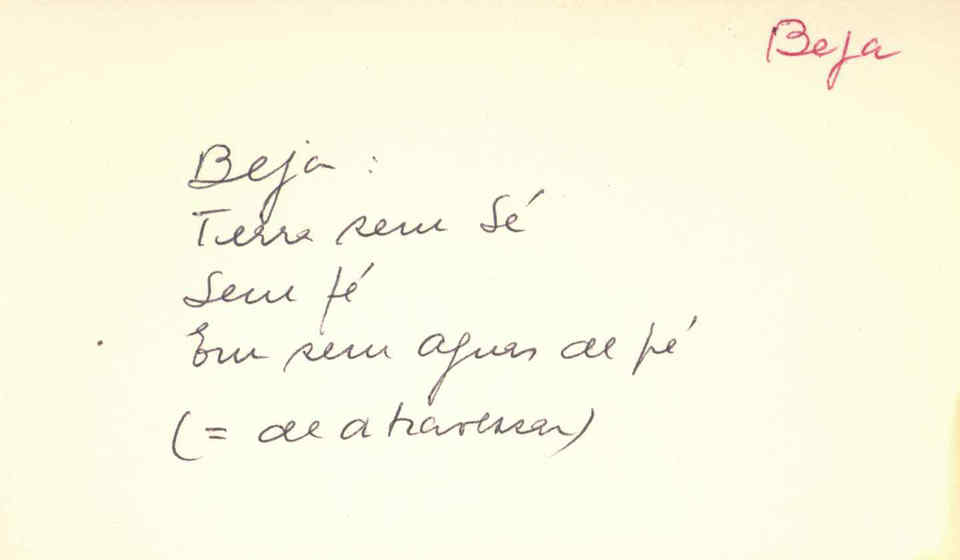 Beja
Beja:
Terra sem Sé
Sem fé
Em sem aguas de pé
(= de atravessar)